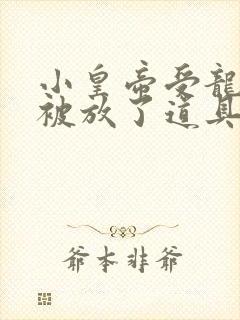 小皇帝受龍
被放了道具
爺本非爺